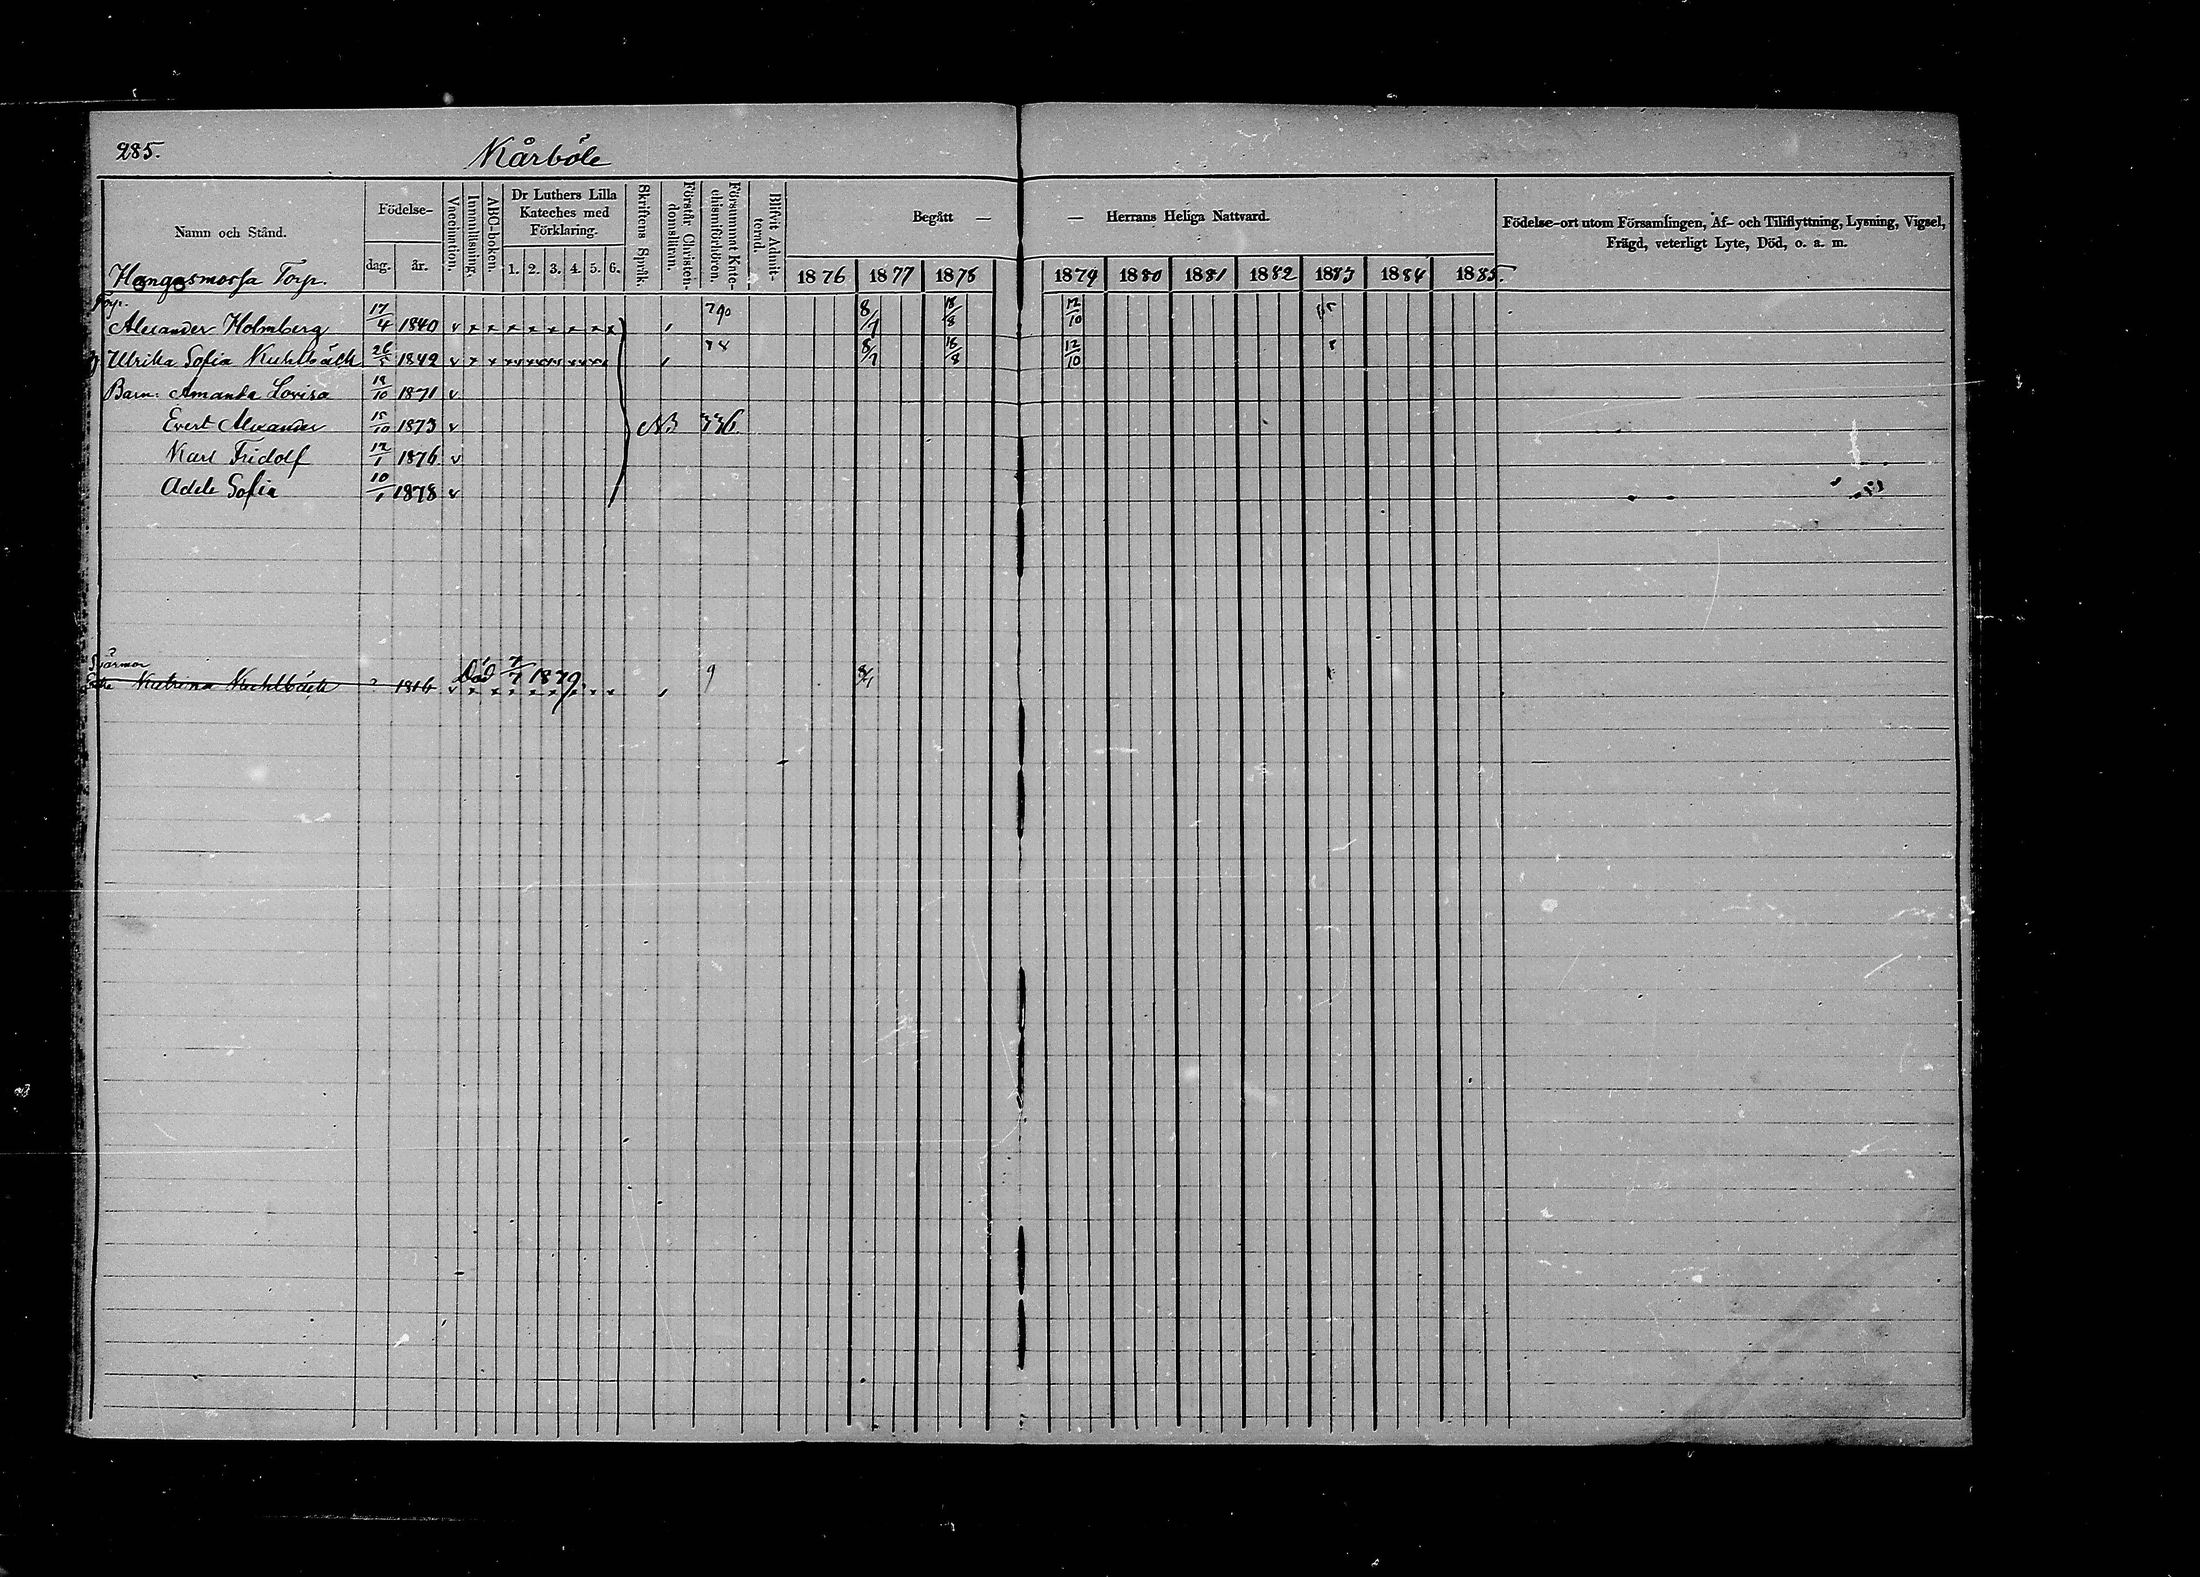 285.
Kårböle
Namn och Stånd.
Födelse-
dag. år.
Vaccination.
Innanläsning.
ABC-boken.
Dr Luthers Lilla Kateches med Förklaring.
1. 2. 3. 4. 5. 6.
Skriftens Språk.
Förstår Christendomslläran.
Försummat Katechismiförhören.
Blifvit Admitterad.
Begått — — Herrans Heliga Nattvard.
1876 1877 1878 1879 1880 1881 1882 1883 1884 1885.
Födelse-ort utom Församlingen, Af- och Tillflyttning, Lysning, Vigsel,
Frägd, veterligt Lyte, Död, o. a. m.
Hangasmossa Torp.
Torp.
Alexander Holmberg 17/4 1840 v x x x x x x x x 8/7 18/8 12/10
Ulrika Sofia Kuhlbäck 26/5 1842 v x x 78 8/7 18/8 12/10
Barn: Amanda Lovisa 18/10 1871 v
Evert Alexander 15/10 1873 v NB 336.
Karl Fridolf 12/1 1876 v
Adele Sofia 10/1 1878 v
Svärmor
Enka Katrina Kuhlbäck ? 1816 Död 7/7 1879. 9 8/7